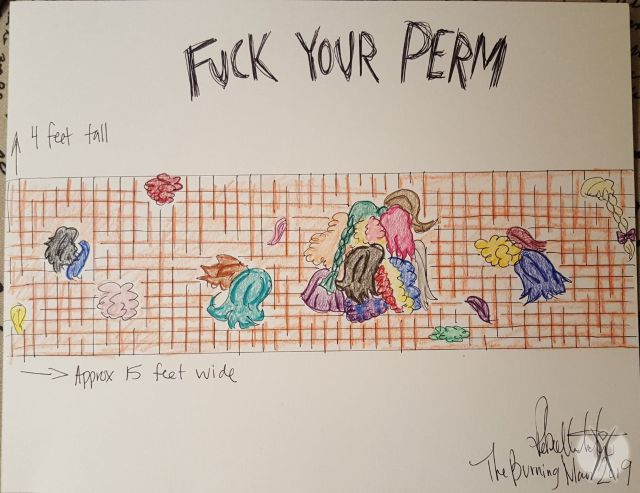 FUCK YOUR PERM
4 feet tall
Approx 15 feet wide
The Burning Man 2019